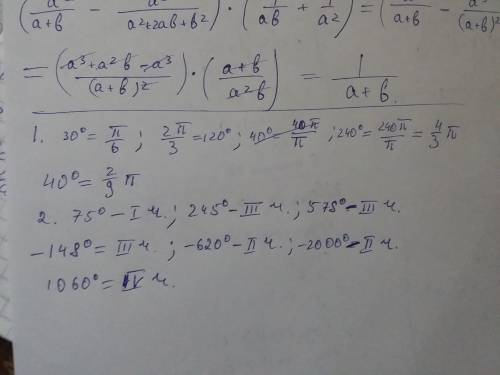 (a²/(a+b) − a³/(a²+2ab+b²)) · (1/(ab) + 1/a²) = (a²/(a+b) − a³/(a+b)²
= ((a³+a²b−a³)/(a+b)²) · ((a+b)/(a²b)) = 1/(a+b).
1. 30° = π/6 ; 2π/3 = 120° ; 40° = 40π/π ; 240° = 240π/π = 4/3 π
40° = 2/9 π
2. 75° − I ч. ; 245° − III ч. ; 578° − III ч.
−148° = III ч. ; −620° − II ч. ; −2000° − II ч.
1060° = IV ч.